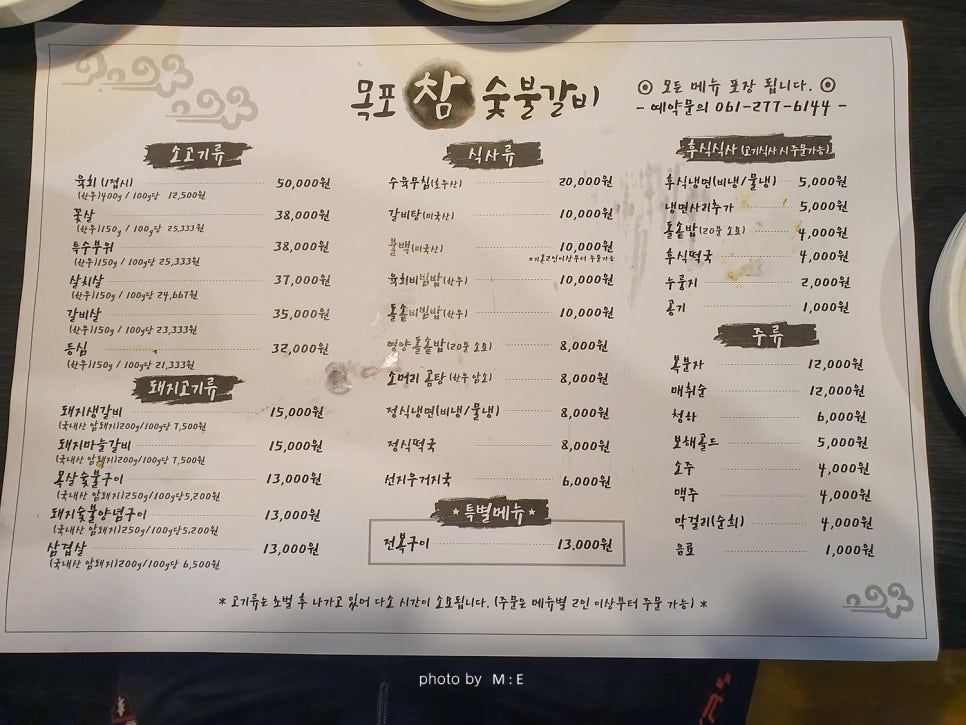 목포 참 숯불갈비
◎ 모든 메뉴 포장 됩니다. ◎
- 예약문의 061-277-6144 -
소고기류
육회 (1접시) 50,000원
(한우)400g / 100g당 12,500원
꽃살 38,000원
(한우)150g / 100g당 25,333원
특수부위 38,000원
(한우)150g / 100g당 25,333원
살치살 37,000원
(한우)150g / 100g당 24,667원
갈비살 35,000원
(한우)150g / 100g당 23,333원
등심 32,000원
(한우)150g / 100g당 21,333원
돼지고기류
돼지생갈비 15,000원
(국내산 암돼지)200g/100g당 7,500원
돼지마늘갈비 15,000원
(국내산 암돼지)200g/100g당 7,500원
목살숯불구이 13,000원
(국내산 암돼지)250g/100g당5,200원
돼지숯불양념구이 13,000원
(국내산 암돼지)250g/100g당5,200원
삼겹살 13,000원
(국내산 암돼지)200g/100g당 6,500원
식사류
수육무침(호주산) 20,000원
갈비탕(미국산) 10,000원
불백(미국산) 10,000원
*기본2인이상부터 주문가능
육회비빔밥(한우) 10,000원
돌솥비빔밥(한우) 10,000원
영양돌솥밥(20분 소요) 8,000원
소머리 곰탕 (한우 암소) 8,000원
정식냉면(비냉/물냉) 8,000원
정식떡국 8,000원
선지우거지국 6,000원
★특별메뉴★
전복구이 13,000원
후식식사 (고기식사 시 주문가능)
후식냉면(비냉/물냉) 5,000원
냉면사리추가 5,000원
돌솥밥(20분 소요) 4,000원
후식떡국 4,000원
누룽지 2,000원
공기 1,000원
주류
복분자 12,000원
매취순 12,000원
청하 6,000원
보해골드 5,000원
소주 4,000원
맥주 4,000원
막걸리(순희) 4,000원
음료 1,000원
* 고기류는 초벌 후 나가고 있어 다소 시간이 소요됩니다. (주문은 메뉴별 2인 이상부터 주문 가능) *
photo by M:E